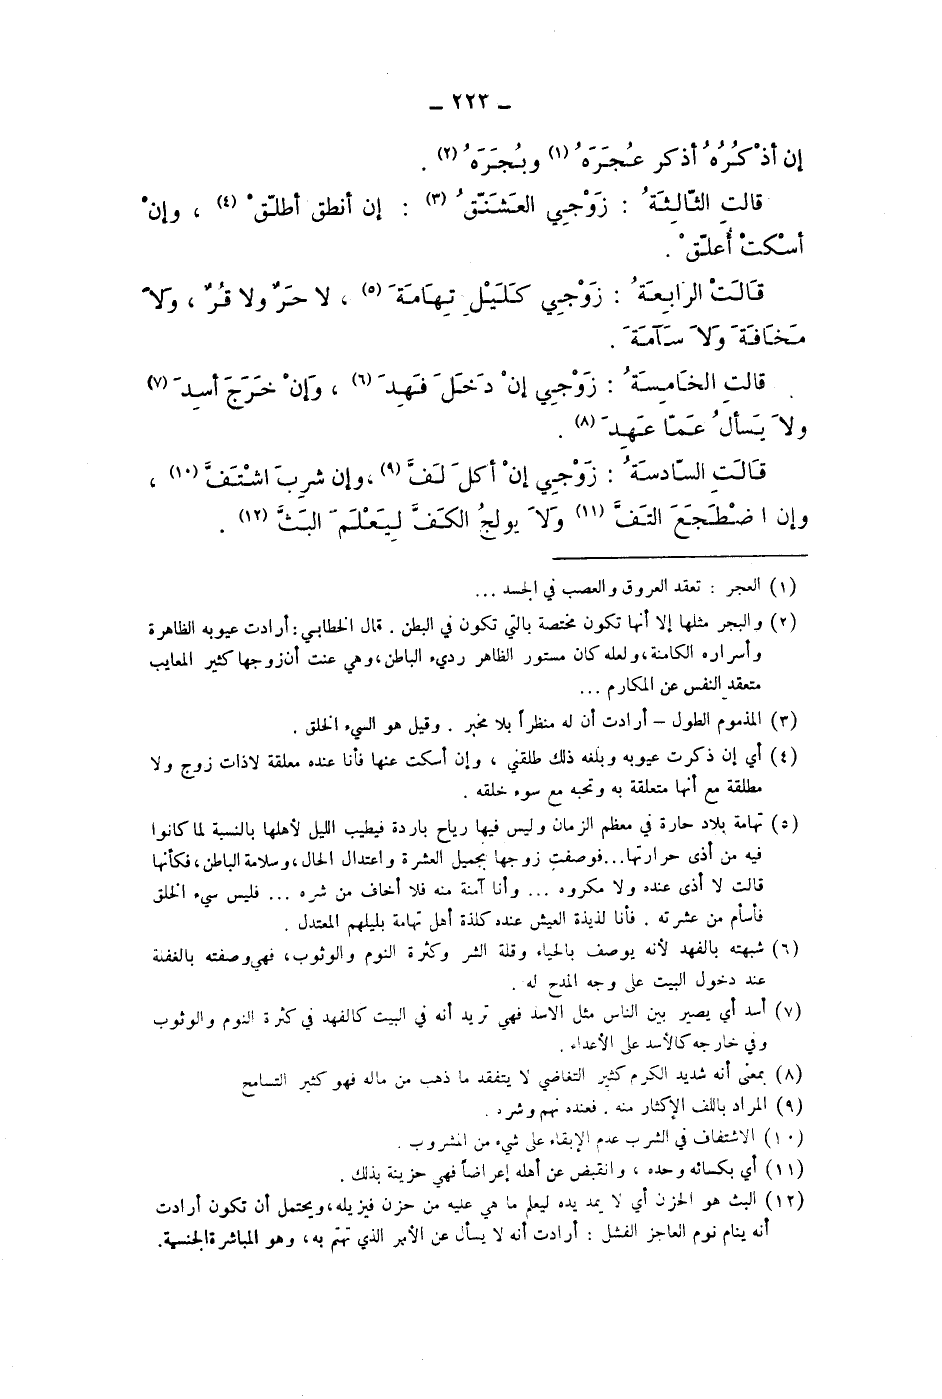 – ٢٢٣ –
إن أذْكُرُهُ أذكر عُجَرَهُ (١) وبُجَرَهُ (٢) .
قالتِ الثّالِثَةُ : زَوْجِي العَشَنّقُ (٣) : إن أنطق أطلّقْ (٤) ، وإنْ
أسْكتْ أُعلّقْ .
قَالَتْ الرّابِعَةُ : زَوْجِي كَلَيْلِ تِهَامَةَ (٥) ، لا حَرٌ ولا قُرٌ ، ولاَ
مَخَافَةَ وَلاَ سَآمَةَ .
قالتِ الخَامِسَةُ : زَوْجِي إنْ دَخَلَ فَهِدَ (٦) ، وَإنْ خَرَجَ أسِدَ (٧)
ولاَ يَسألُ عَمّا عَهِدَ (٨) .
قَالَتِ السّادسَةُ : زَوْجِي إنْ أكلَ لَفَّ (٩) ، وإن شرِبَ اشْتَفَّ (١٠) ،
وإن اضْطَجَعَ التَفَّ (١١) وَلاَ يولجُ الكَفَّ لِيَعْلَمَ البَثَّ (١٢) .
(١) العجر : تعقد العروق والعصب في الجسد ...
(٢) والبجر مثلها إلا أنها تكون مختصة بالتي تكون في البطن . قال الخطابي : أرادت عيوبه الظاهرة
وأسراره الكامنة ، ولعله كان مستور الظاهر رديء الباطن ، وهي عنت أن زوجها كثير المعايب
متعقد النفس عن المكارم ...
(٣) المذموم الطول – أرادت أن له منظراً بلا مخبر . وقيل هو السيء الخلق .
(٤) أي إن ذكرت عيوبه وبلغه ذلك طلقني ، وإن أسكت عنها فأنا عنده معلقة لاذات زوج ولا
مطلقة مع أنها متعلقة به وتحبه مع سوء خلقه .
(٥) تهامة بلاد حارة في معظم الزمان وليس فيها رياح باردة فيطيب الليل لأهلها بالنسبة لما كانوا
فيه من أذى حرارتها... فوصفت زوجها بجميل العشرة واعتدال الحال ، وسلامة الباطن ، فكأنها
قالت لا أذى عنده ولا مكروه ... وأنا آمنة منه فلا أخاف من شره ... فليس سيء الخلق
فأسأم من عشرته . فأنا لذيذة العيش عنده كلذة أهل تهامة بليلهم المعتدل .
(٦) شبهته بالفهد لأنه يوصف بالحياء وقلة الشر وكثرة النوم والوثوب ، فهي وصفته بالغفلة
عند دخول البيت على وجه المدح له .
(٧) أسد أي يصير بين الناس مثل الاسد فهي تريد أنه في البيت كالفهد في كثرة النوم والوثوب
وفي خارجه كالأسد على الأعداء .
(٨) بمعنى أنه شديد الكرم كثير التغاضي لا يتفقد ما ذهب من ماله فهو كثير التسامح
(٩) المراد باللف الإكثار منه . فعنده نهم وشره .
(١٠) الاشتفاف في الشرب عدم الإبقاء على شيء من المشروب .
(١١) أي بكسائه وحده ، وانقبض عن أهله إعراضاً فهي حزينة بذلك .
(١٢) البث هو الحزن أي لا يمد يده ليعلم ما هي عليه من حزن فيزيله ، ويحتمل أن تكون أرادت
أنه ينام نوم العاجز الفشل : أرادت أنه لا يسأل عن الأمر الذي تهتم به ، وهو المباشرة الجنسية .